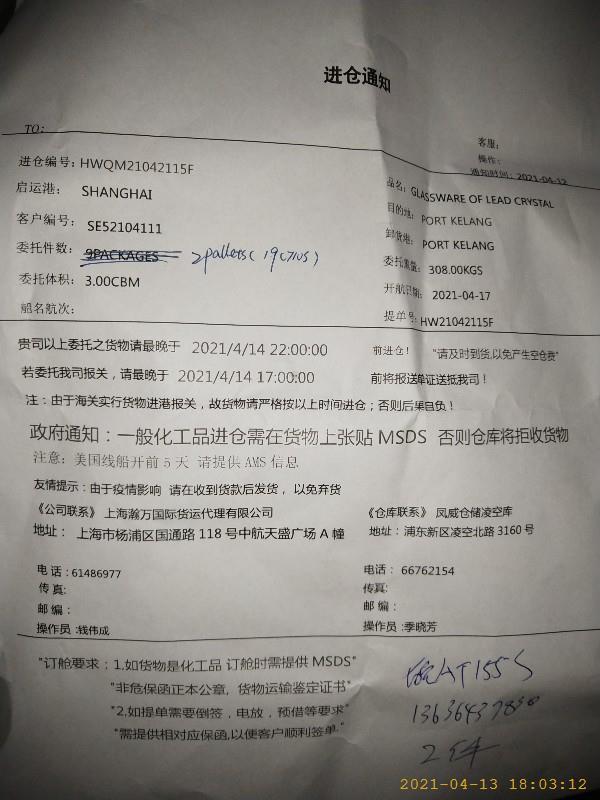 进仓通知
TO:
客服:
操作:
通知时间: 2021-04-12
进仓编号: HWQM21042115F
品名: GLASSWARE OF LEAD CRYSTAL
启运港: SHANGHAI
目的地: PORT KELANG
客户编号: SE52104111
卸货港: PORT KELANG
委托件数: 9PACKAGES 2pallets(
委托重量: 308.00KGS
委托体积: 3.00CBM
开航日期: 2021-04-17
船名航次:
提单号: HW21042115F
贵司以上委托之货物请最晚于 2021/4/14 22:00:00 前进仓! "请及时到货,以免产生空仓费"
若委托我司报关,请最晚于 2021/4/14 17:00:00 前将报送单证送抵我司!
注:由于海关实行货物进港报关,故货物请严格按以上时间进仓;否则后果自负!
政府通知:一般化工品进仓需在货物上张贴 MSDS 否则仓库将拒收货物
注意:美国线船开前 5 天 请提供 AMS 信息
友情提示:由于疫情影响 请在收到货款后发货,以免弃货
《公司联系》上海瀚万国际货运代理有限公司
《仓库联系》 凤威仓储凌空库
地址: 上海市杨浦区国通路 118 号中航天盛广场 A 幢
地址: 浦东新区凌空北路 3160 号
电话:61486977
电话: 66762154
传真:
传真:
邮编:
邮编:
操作员:钱伟成
操作员:季晓芳
"订舱要求:1.如货物是化工品 订舱时需提供 MSDS"
"非危保函正本公章, 货物运输鉴定证书"
"2.如提单需要倒签,电放,预借等要求"
"需提供相对应保函,以便客户顺利签单."
皖AT155S
2件
2021-04-13 18:03:12